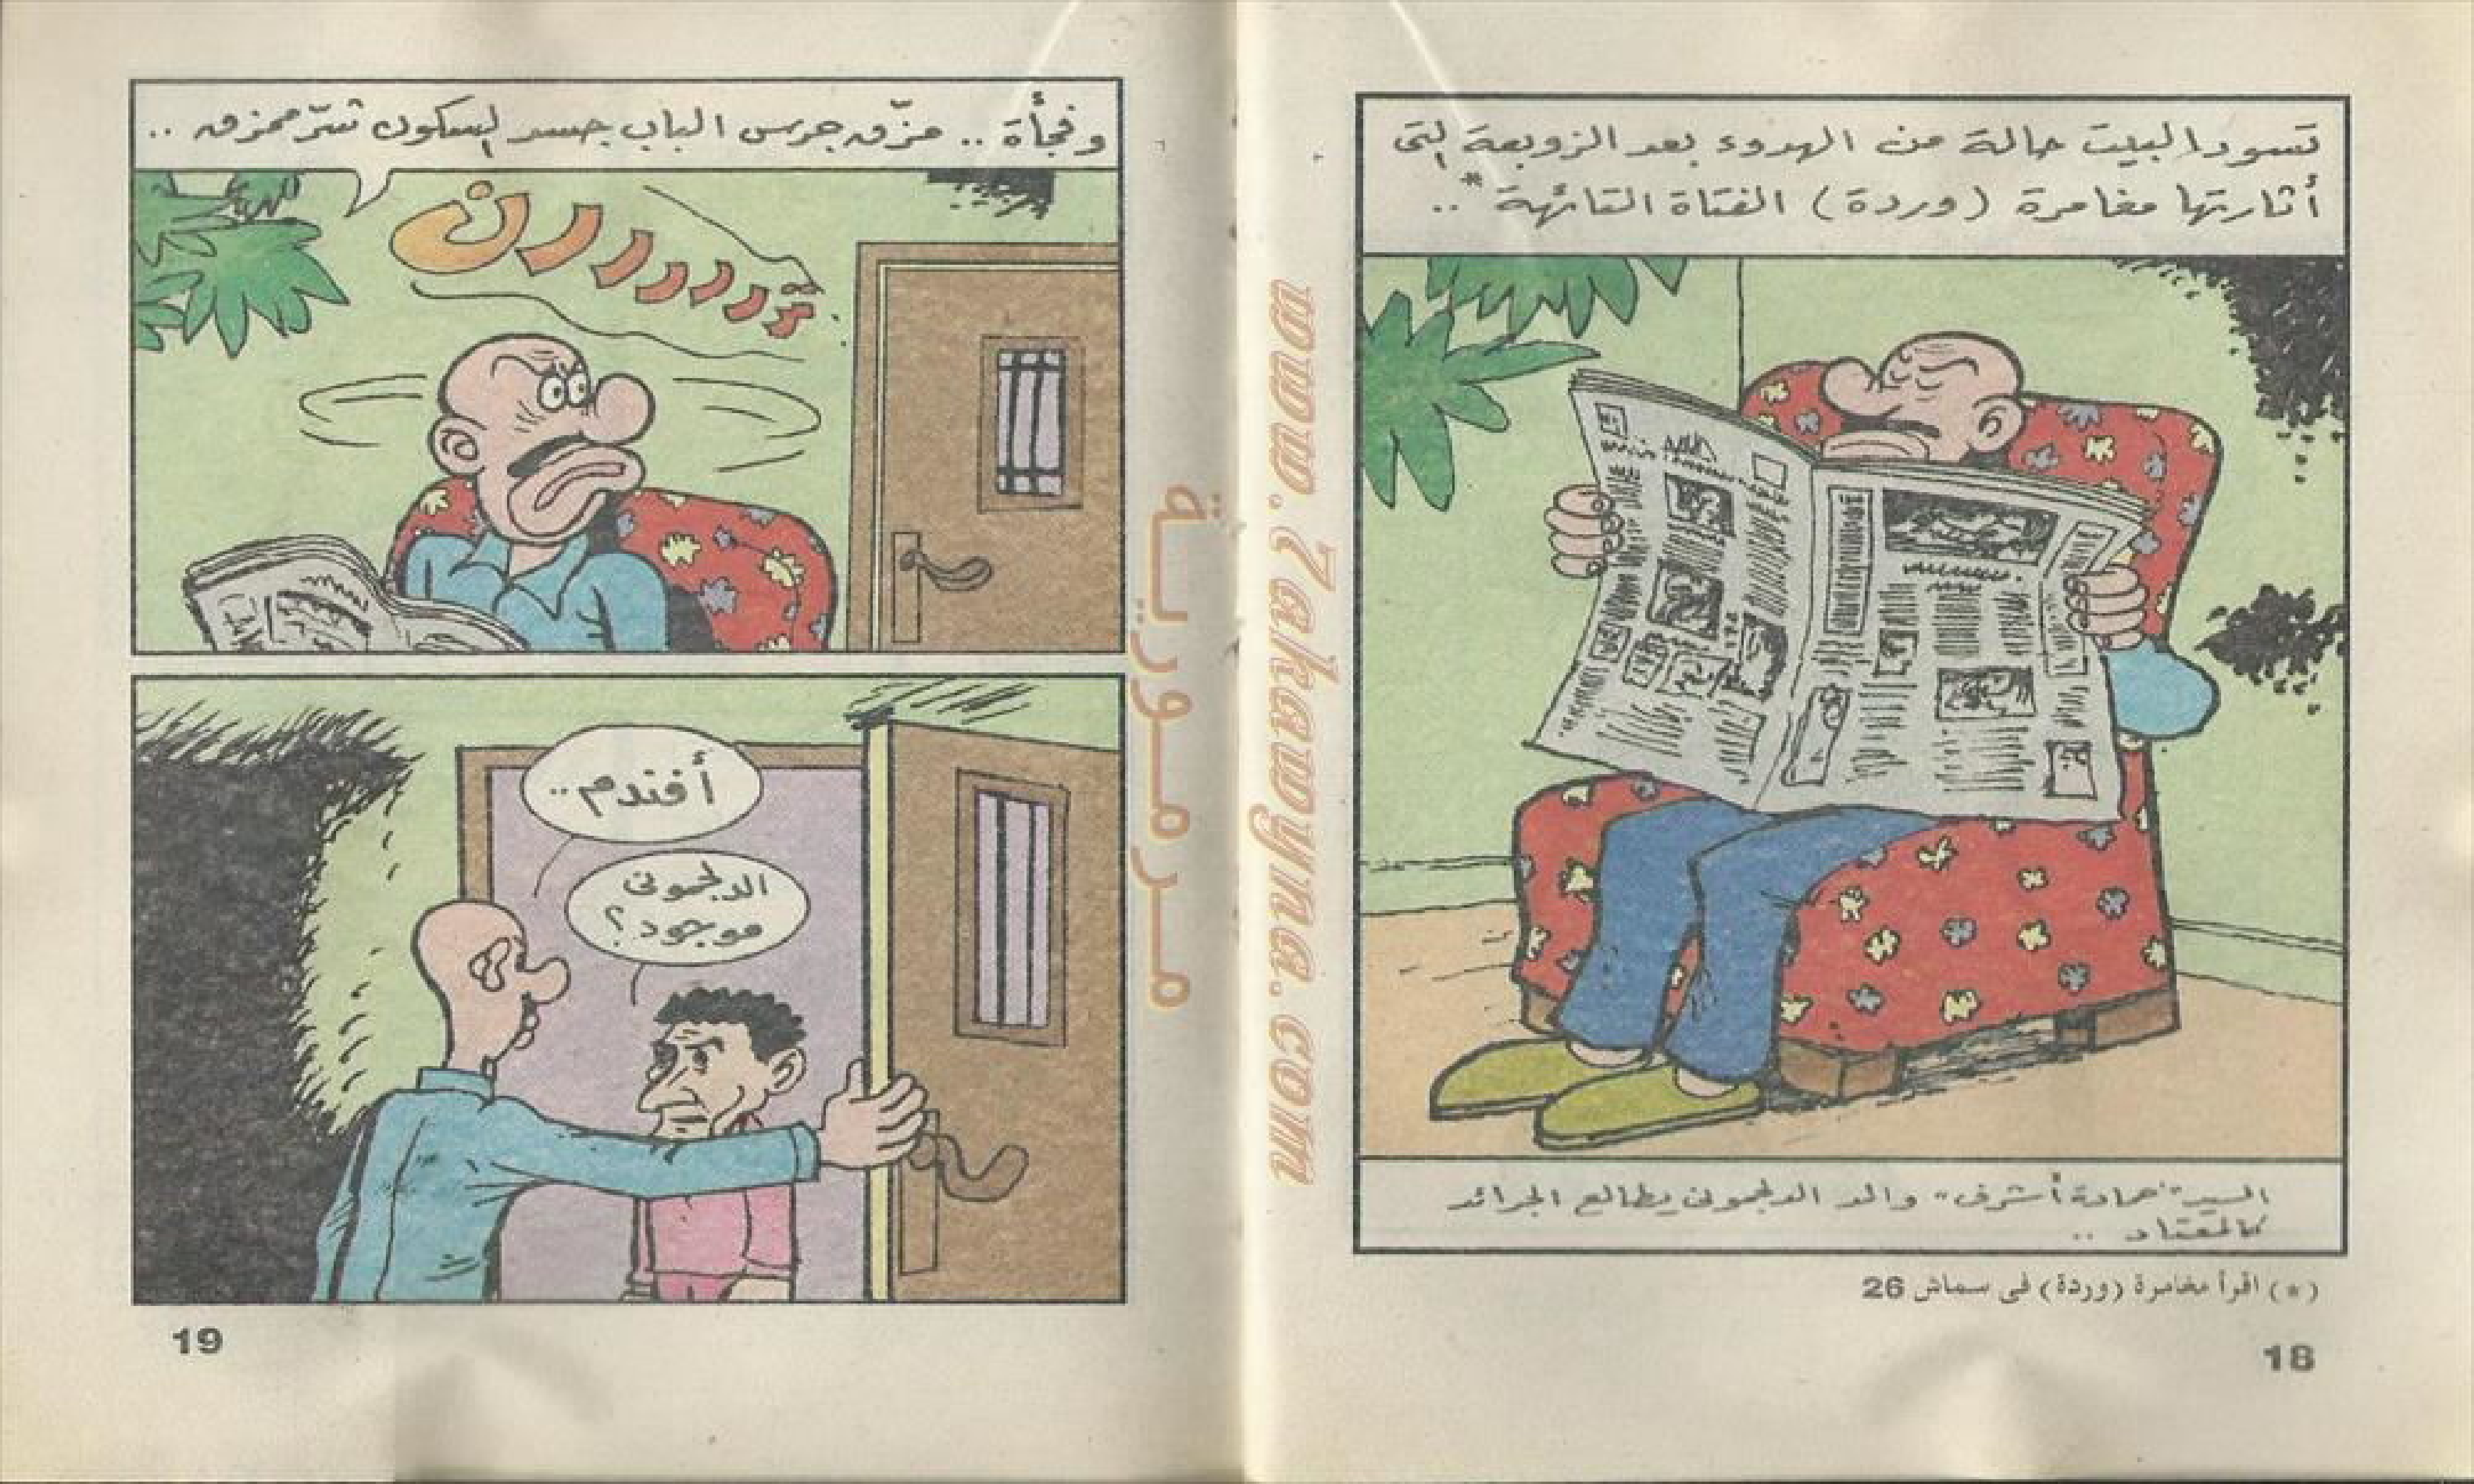 تسود البيت حالة من الهدوء بعد الزوبعة التى
أثارتها مغامرة (وردة) الفتاة التائهة* ..
السيد "حمادة أشرف" والد الدلجمونى يطالع الجرائد
كالمعتاد ..
(*) اقرأ مغامرة (وردة) فى سماش 26
18
وفجأة .. مزّق جرس الباب جسد السكون شرّ ممزق ..
ترررررررن
أفندم ..
الدلجمونى
موجود؟
19
مرمورية
www.7akawyna.com